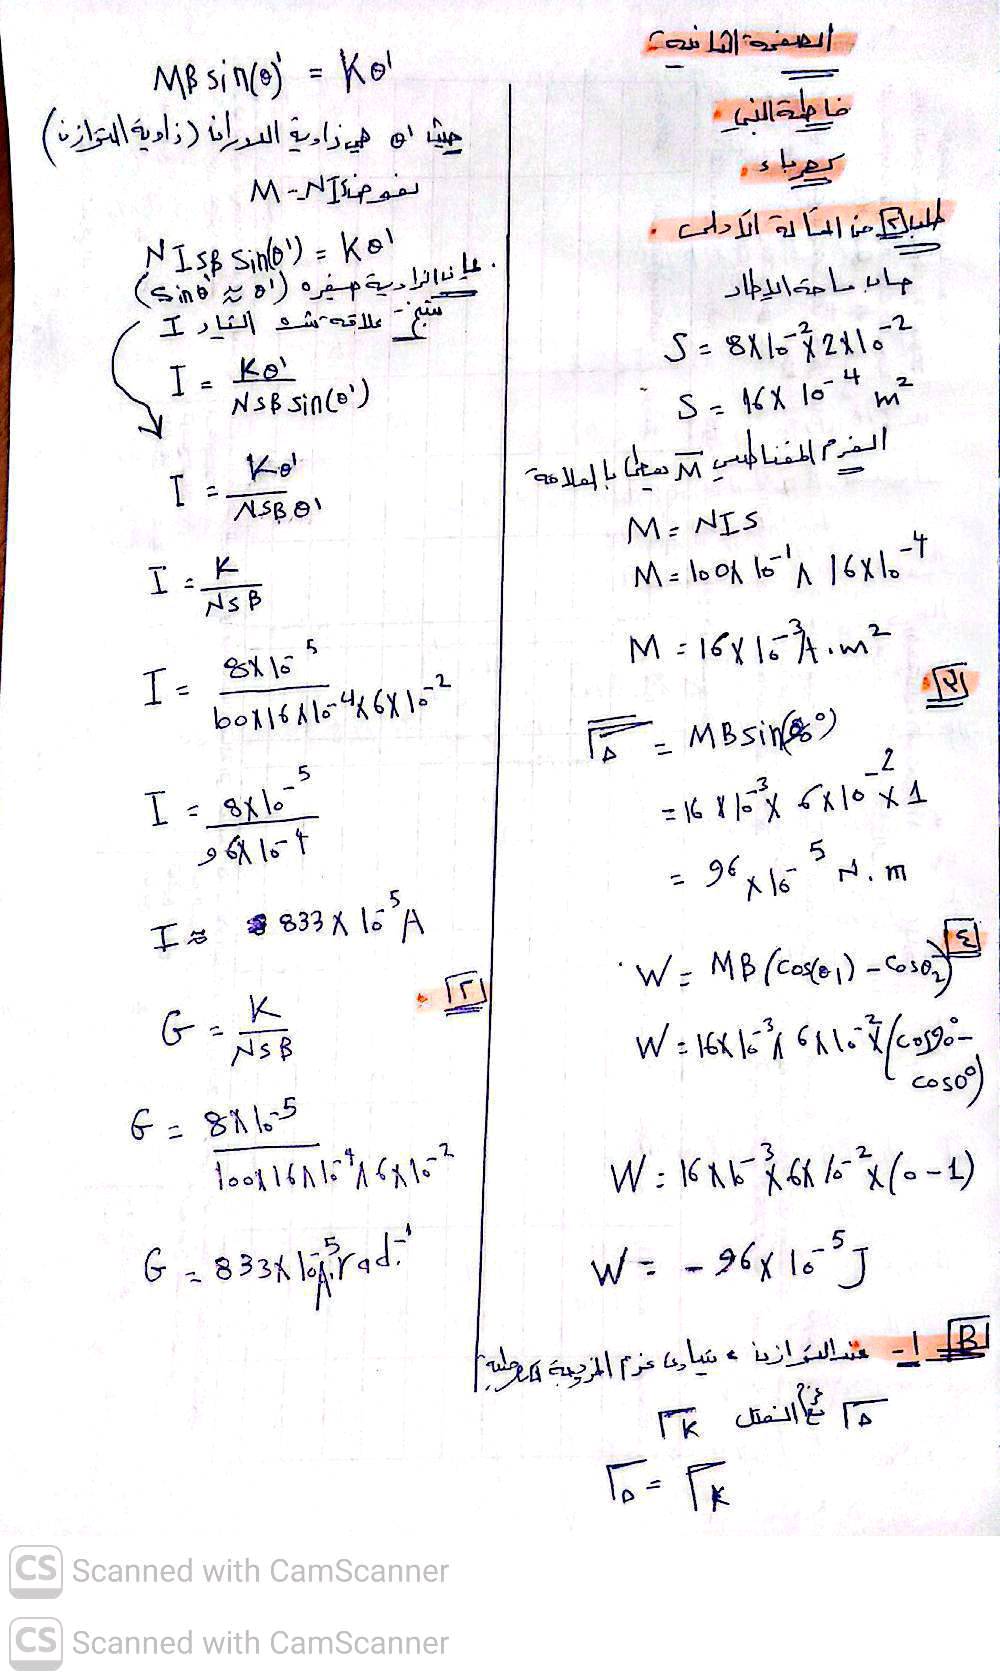 الصفحة الثانية:
فاطمة النبي.
كهرباء.
طلب [٢] من المسألة الأولى.
حساب مساحة الإطار
S = 8×10⁻² × 2×10⁻²
S = 16×10⁻⁴ m²
العزم المغناطيسي M يعطى بالعلاقة
M = NIS
M = 100×10⁻¹ × 16×10⁻⁴
M = 16×10⁻³ A.m²
Γ△ = MB sin(90°)
= 16×10⁻³ × 6×10⁻² × 1
= 96×10⁻⁵ N.m
[٤]
W = MB(cos(θ₁) - cosθ₂)
W = 16×10⁻³ × 6×10⁻² × (cos90° -
cos0°)
W = 16×10⁻³ × 6×10⁻² × (0 - 1)
W = - 96×10⁻⁵ J
[B] 1- عند التوازن، يتساوى عزم المزدوجة الكهرطيسية
Γ△ مع عزم الفتل Γk
Γ△ = Γk
MB sin(θ)' = Kθ'
حيث θ' هي زاوية الدوران (زاوية التوازن)
نعوض M = NIS
NISB sin(θ') = Kθ'
بما أن الزاوية صغيرة (sinθ' ≈ θ')
نتج - علاقة شدة التيار I
I = Kθ' / NSB sin(θ')
I = Kθ' / NSBθ'
I = K / NSB
I = 8×10⁻⁵ / 100×16×10⁻⁴×6×10⁻²
I = 8×10⁻⁵ / 96×10⁻⁴
I ≈ 833×10⁻⁵ A
[٢].
G = K / NSB
G = 8×10⁻⁵ / 100×16×10⁻⁴×6×10⁻²
G = 833×10⁻⁵ A.rad⁻¹
CS Scanned with CamScanner
CS Scanned with CamScanner